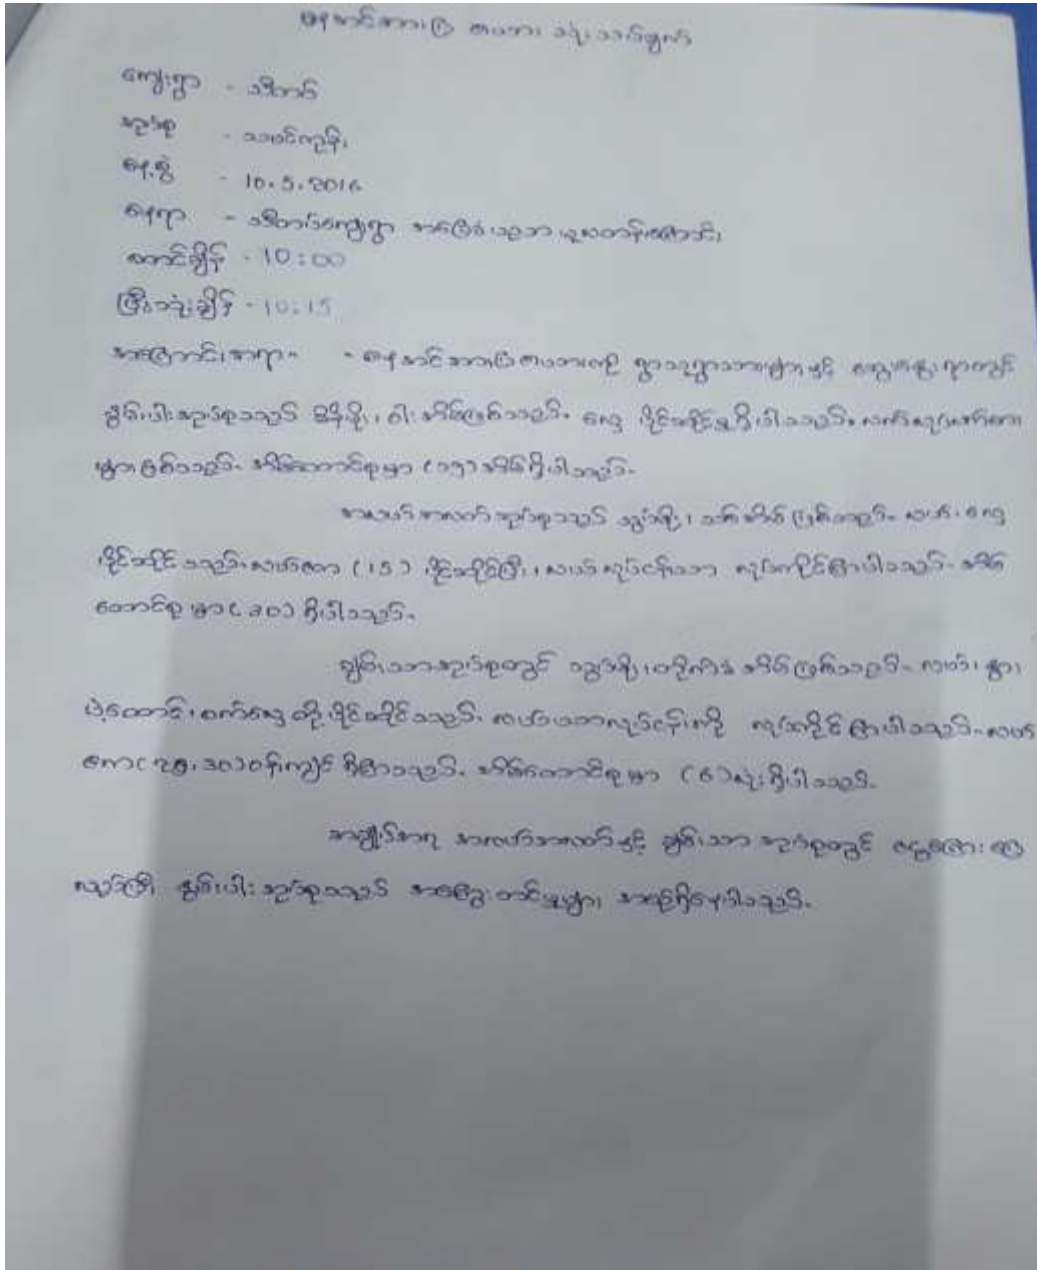 ကျေးရွာ - သီတပ်
အုပ်စု - သမင်ကုန်း
နေ့စွဲ - 10.5.2016
နေရာ - သီတပ်ကျေးရွာ အခြေခံပညာမူလတန်းကျောင်း
စတင်ချိန် - 10:00
ပြီးဆုံးချိန် - 10:15
အကြောင်းအရာ - ရွာသူရွာသားများနှင့် တွေ့ဆုံဆွေးနွေးရာတွင်
နွမ်းပါးအုပ်စုသည် မိုး၊ ဝါးအိမ်ဖြစ်သည်။ လှေ ပိုင်ဆိုင်မှုရှိပါသည်။ လက်လုပ်လက်စား
များဖြစ်သည်။ အိမ်ထောင်စုမှာ အိမ်ရှိပါသည်။
အလယ်အလတ်အုပ်စုသည် သွပ်မိုး၊ အိမ်ဖြစ်သည်။ လယ်၊ လှေ
ပိုင်ဆိုင်သည်။ လယ်ဧက (15) ပိုင်ဆိုင်ပြီး၊ လယ်လုပ်ငန်းသာ လုပ်ကိုင်ကြပါသည်။ အိမ်
ထောင်စုမှာ (၃၀) ရှိပါသည်။
ချမ်းသာအုပ်စုတွင် သွပ်မိုး၊ တိုက်ခံအိမ်ဖြစ်သည်။ လယ်၊ နွား၊
ပဲ့ထောင်၊ စက်လှေတို့ ပိုင်ဆိုင်သည်။ လယ်ယာလုပ်ငန်းကို လုပ်ကိုင်ကြပါသည်။ လယ်
ဧက ဝန်းကျင် ရှိကြသည်။ အိမ်ထောင်စုမှာ (6) လုံးရှိပါသည်။
အချို့အရာ အလယ်အလတ်နှင့် ချမ်းသာ အုပ်စုတွင် ငွေကြေး
နွမ်းပါးအုပ်စုသည် အကြွေးတင်မှုများ ရှိနေပါသည်။